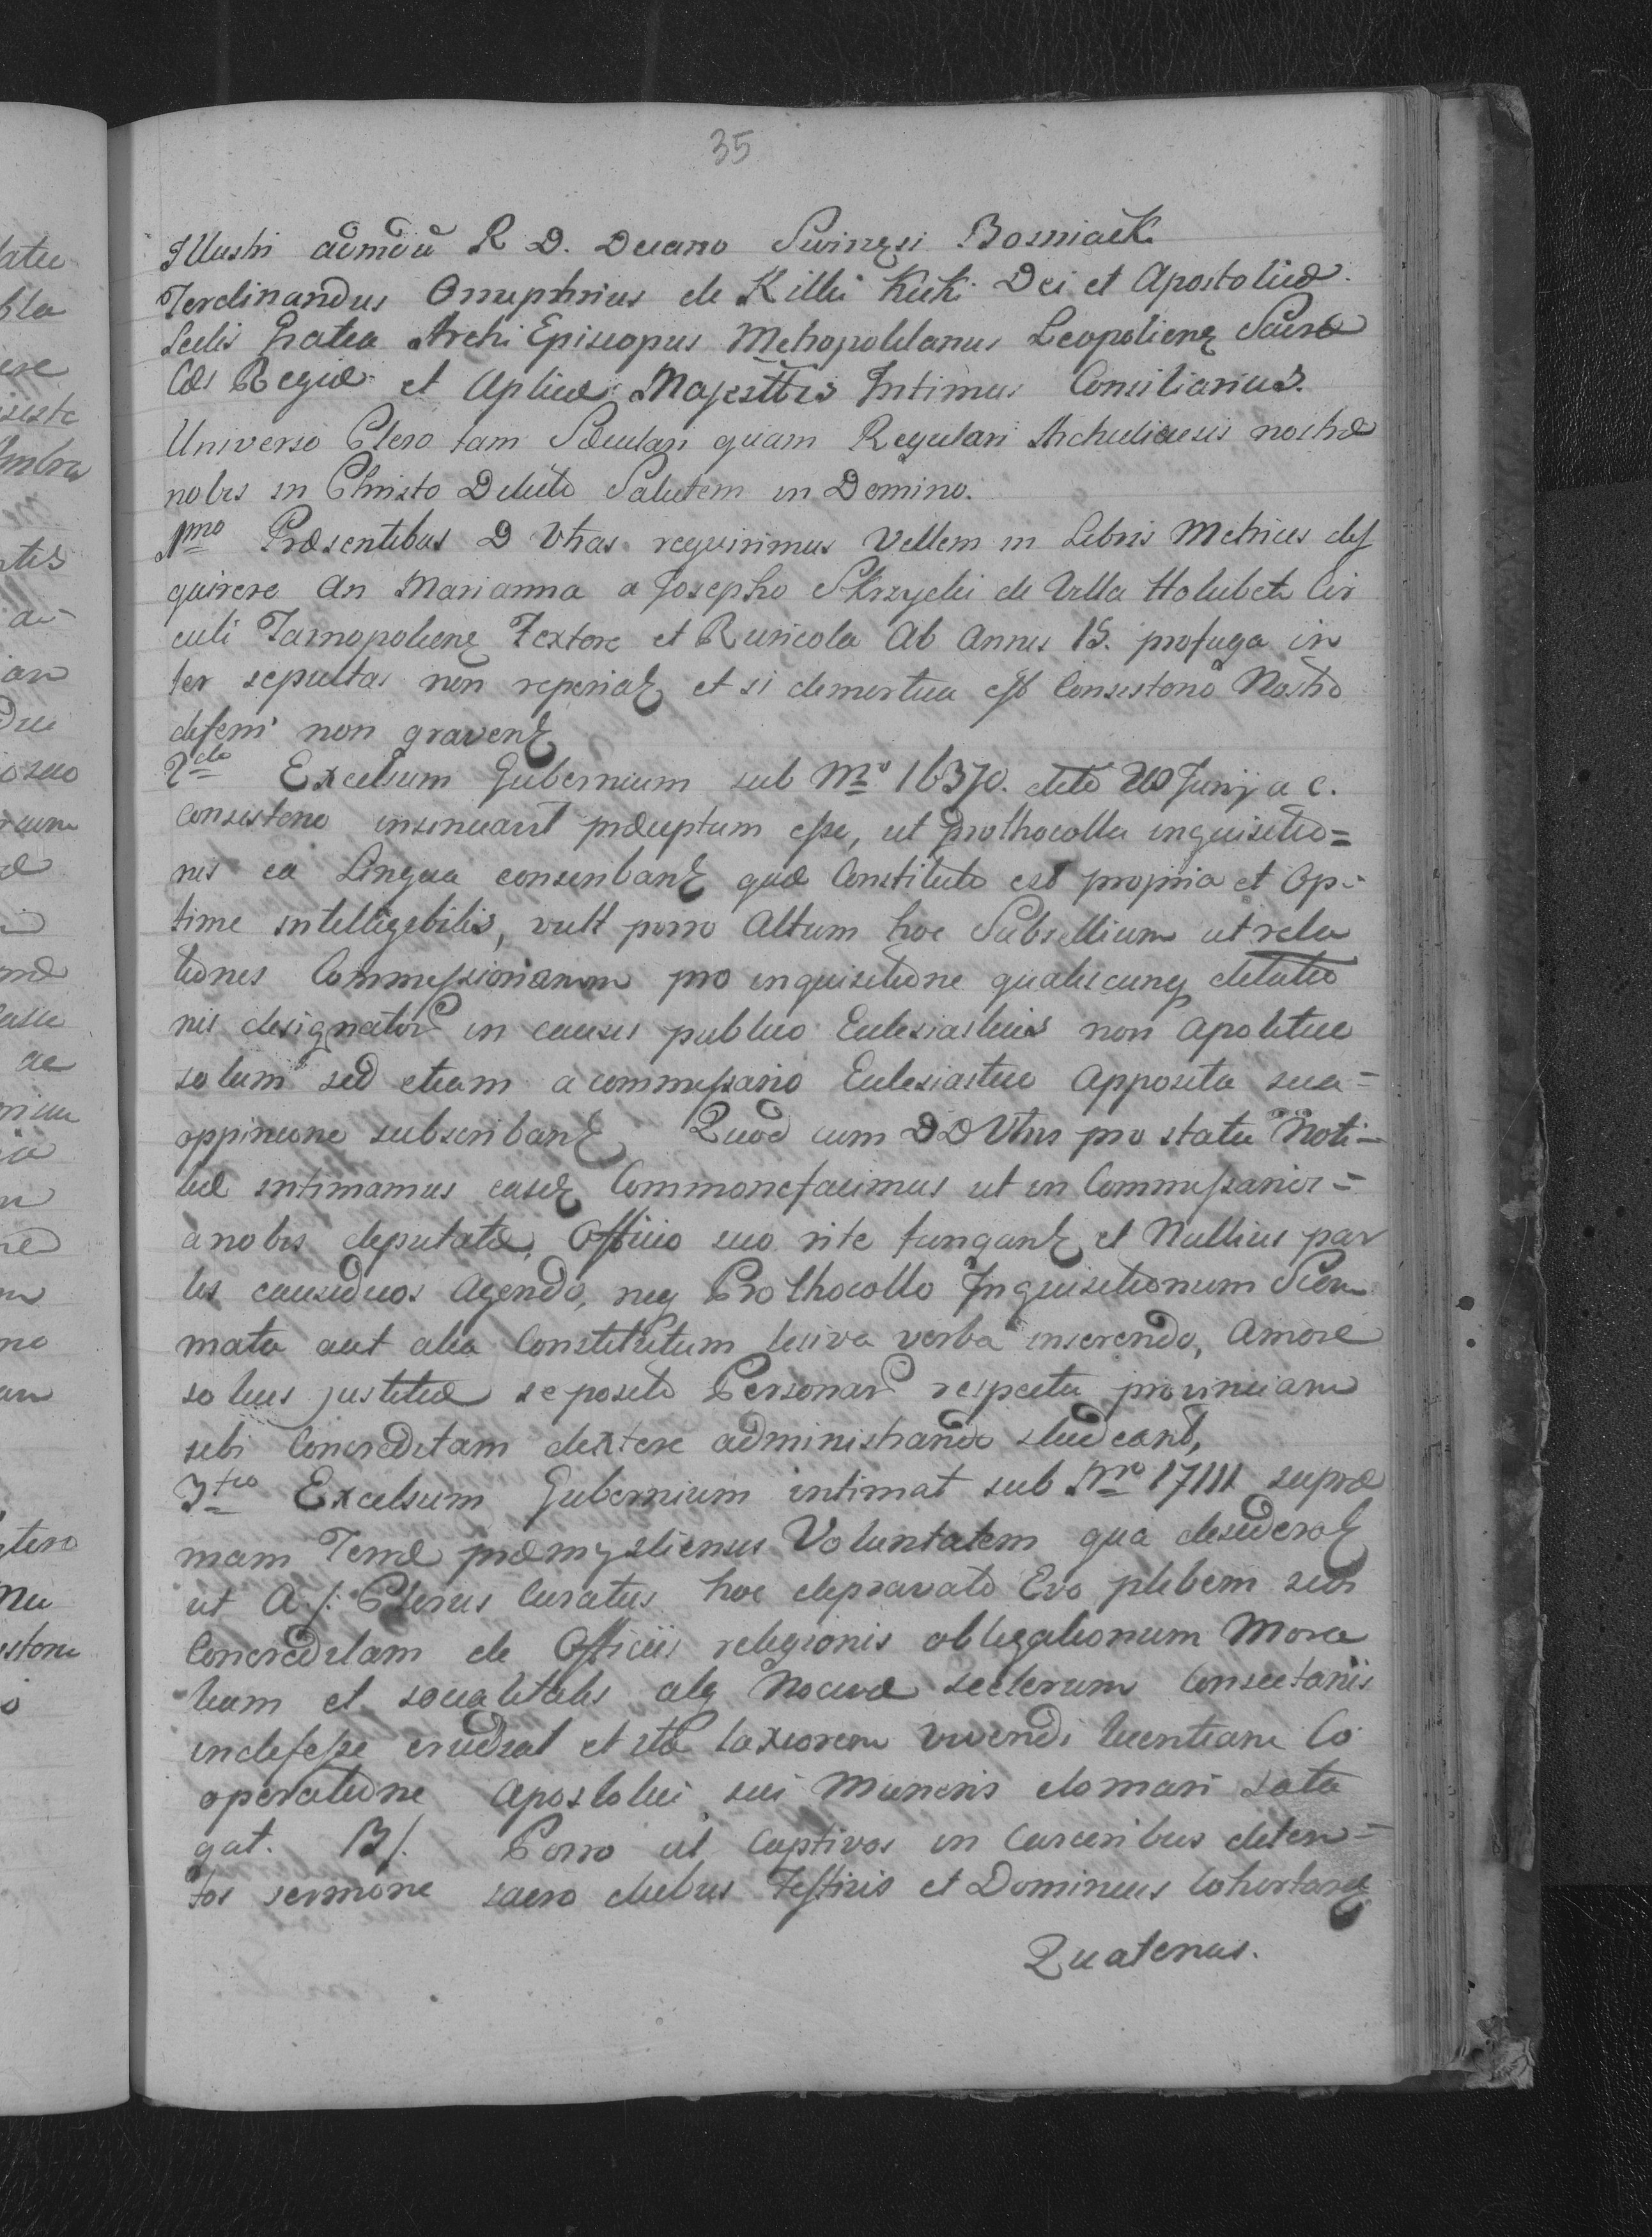 35
Illustri admdū R D. Decano Swirzsi Bosniack
Ferdinandus Onuphrius de Killi Kicki Dei et Apostolicæ
Sedis Gratia Archi Episcopus Metropolitanus Leopolienȝ Sacræ
Cæs Regiæ et Aplicæ Majesttis Intimus Consiliarius.
Universo Clero tam Sæculari quam Regulari Archidiæcesis nostræ
nobis in Christo Dilecto Salutem in Domino.
1mo Præsentibus D Vtras requirimus Vellem in Libris Metricis dis
quirere an Marianna a Josepho Skrzycki de Villa Holubek Cir
culi Tarnopolienȝ Textore et Ruricola ab Annis 15. profuga in
ter sepultas non reperiatȝ et si demortua est Consistorio Nostro
deferri non graventȝ
2do Excelsum Gubernium sub Nro 16370. dtto 20 Junij a c.
Consistorio insinuavit præceptum esse, ut prothocolla inquisitio=
nis ea Lingua conscribantȝ quæ Constituto est propria et Op-
time intelligibilis, vult porro Altum hoc Subsellium ut rela
tiones Commissionarum pro inquisitione qualiscunqȝ delatio
nis designator in causis publico Eclesiasticis non apolitico
solum sed etiam a commissario Eclesiastico Apposita sua=
oppinione subscribantȝ Quod cum DD Vtris pro statu Noti-
tiæ intimamus easdȝ Commonefacimus ut in Commissarios=
a nobis deputatæ, Officio suo rite fungantȝ et Nullius par
tis causidicos agendo, neqȝ Prothocollo Inquisitionum Scom
mata aut alia Constitutum lesiva verba inserendo, Amore
solius justitiæ seposito Personar respectu provinciam
sibi Concreditam dextere administrando studeant,
3tio Excelsum Gubernium intimat sub Nro 17111 supræ
mam Terræ præmysliensis Voluntatem qua desideratȝ
ut A/: Clerus Curatus hoc depravato Evo plebem sibi
Concreditam de Officiis religionis obligationum Mora
lium et socialitatis atqȝ Nocivæ scelerum Consectariis
indefesse erudiat et ita laxiorem vivendi licentiam Co
operatione Apostolici sui Muneris domari sata
gat. B/. Porro ut Captivos in Carceribus deten=
tos sermone sacro diebus Festivis et Dominicis Cohortarȝ
Quatenus.